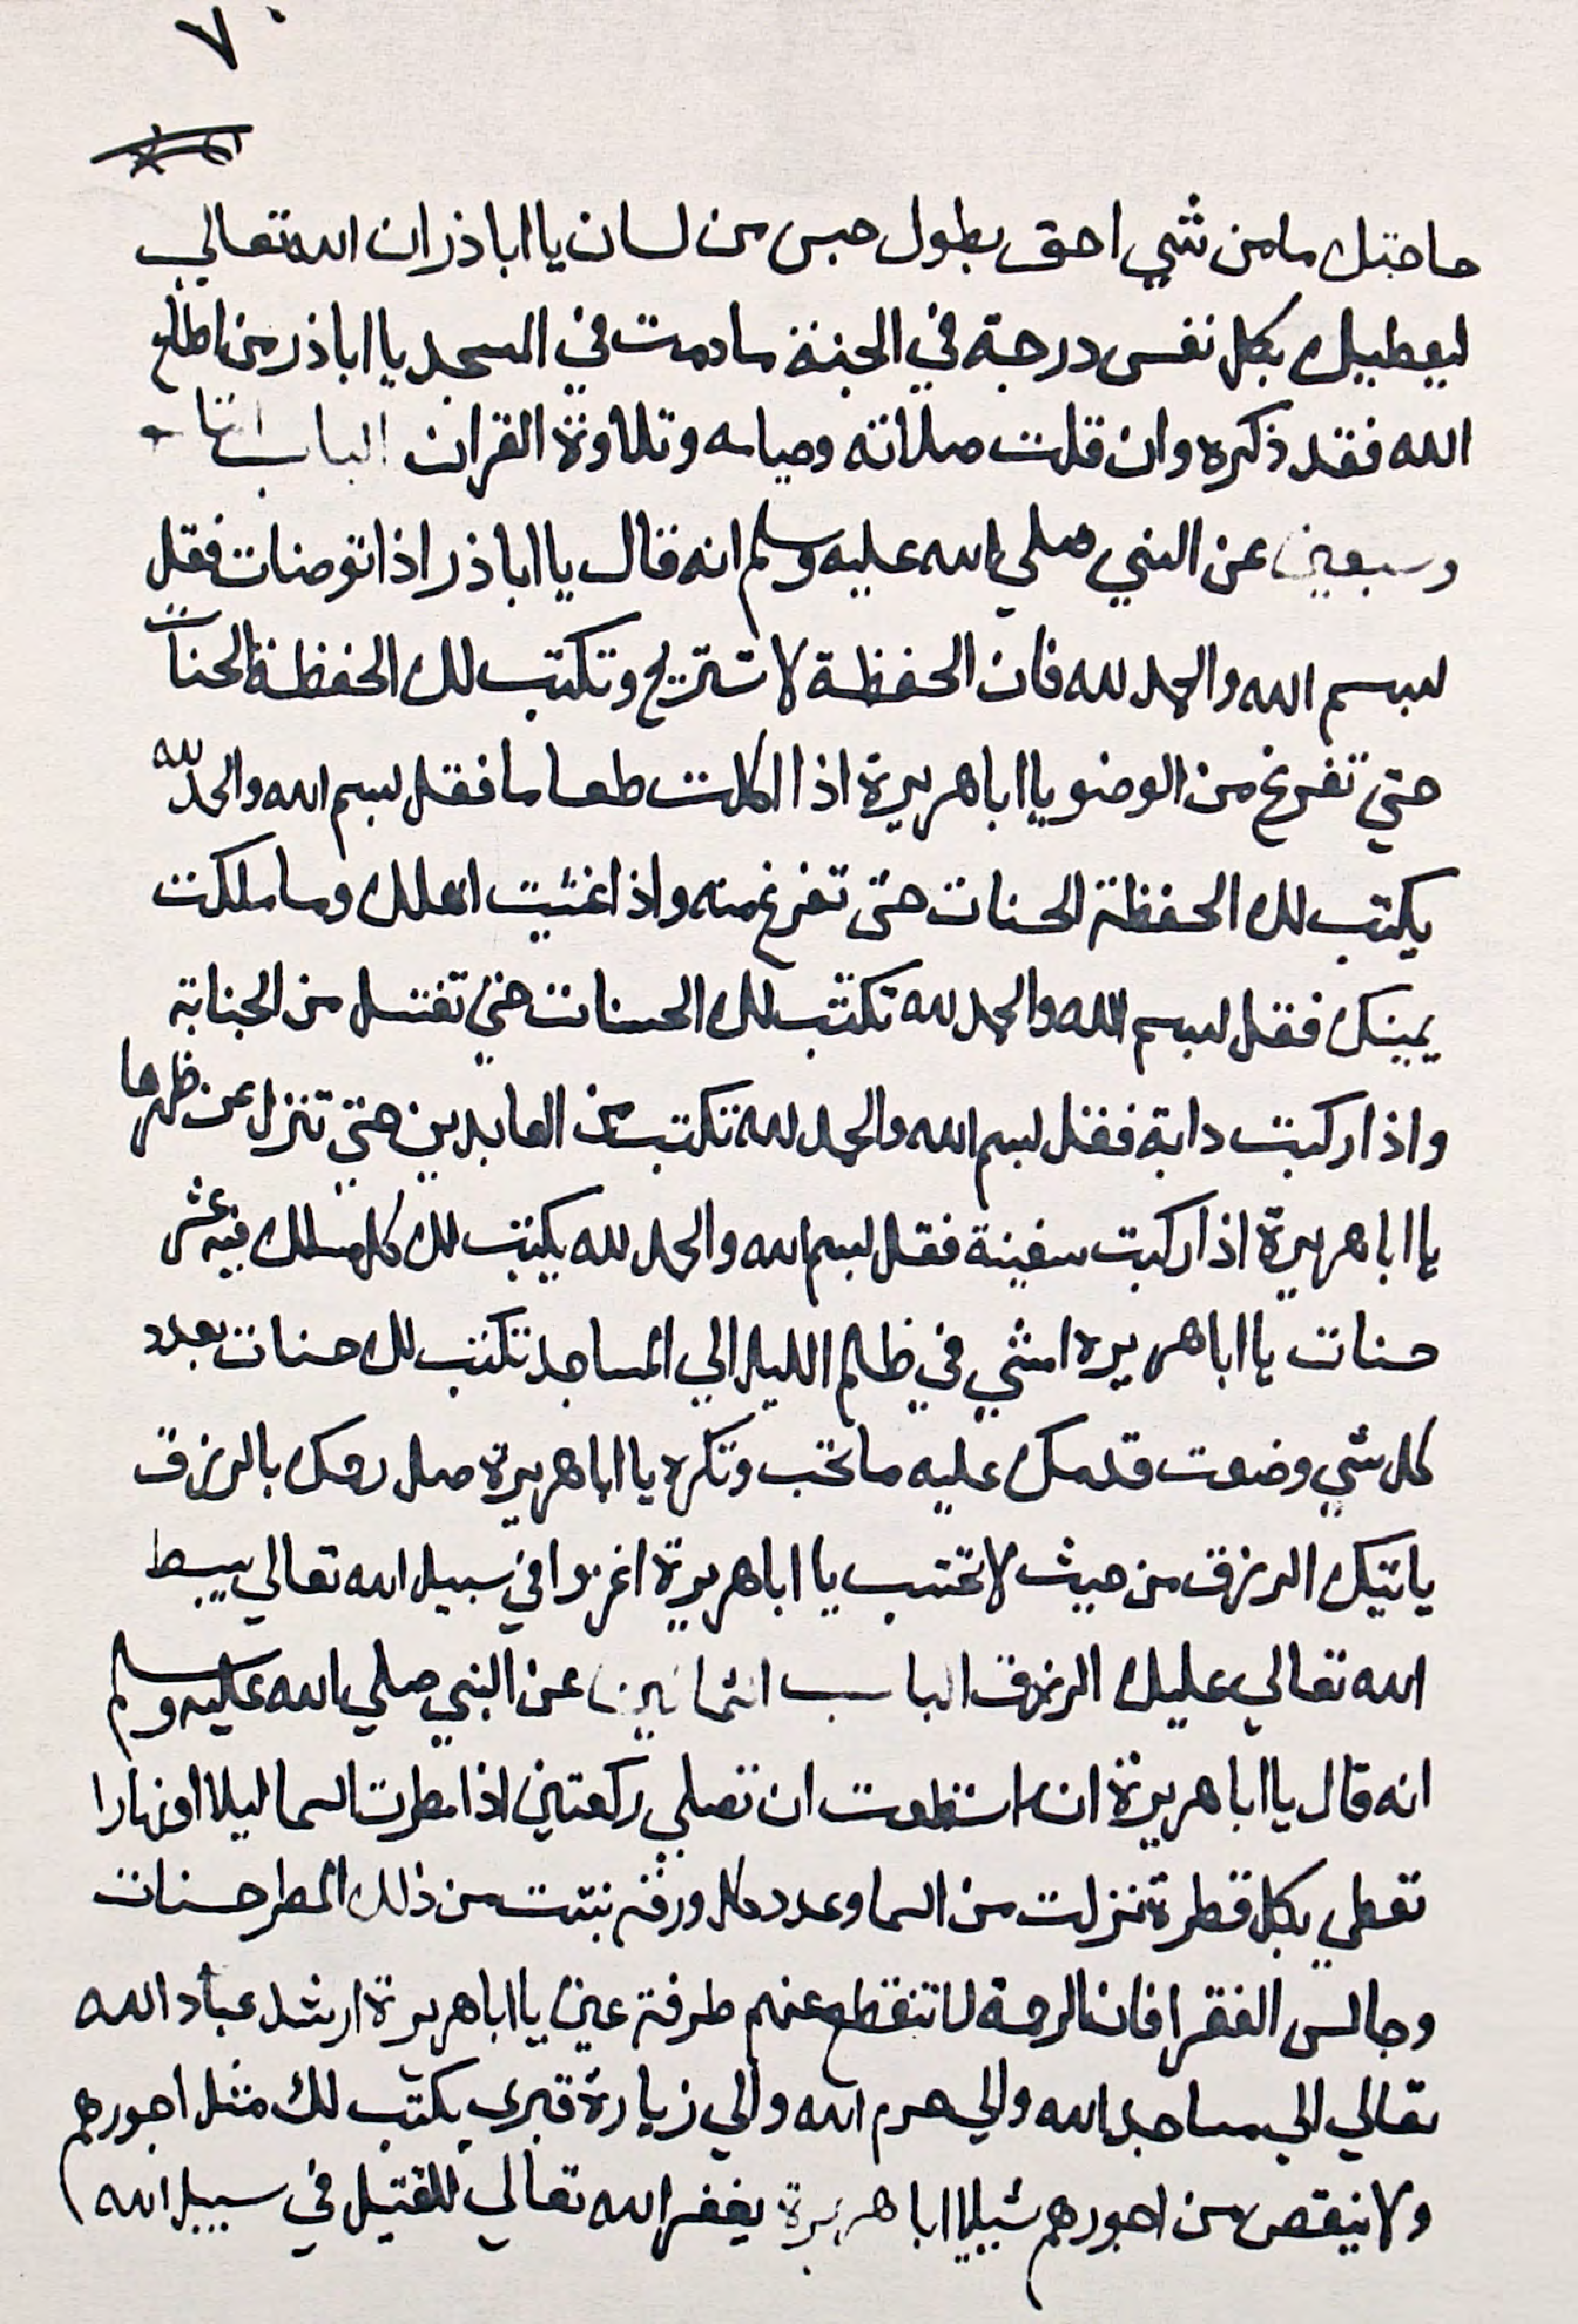 ٧٠
حاجتك مامن شي احق بطول حبس من لسان يا اباذر ان الله تعالي
ليعطيك بكل نفس درجة في الجنة مادمت في المسجد يا اباذر من اطاع
الله فقد ذكره وان قلت صلاته وصيامه وتلاوة القران الباب
وسبعين عن النبي صلي الله عليه وسلم انه قال يا اباذر اذا توضات فقل
بسم الله والحمد لله فان الحفظة لا تستريح وتكتب لك الحفظة الحسنات
حتي تفرغ من الوضو يا اباهريرة اذا اكلت طعاما فقل بسم الله والحمد لله
يكتب لك الحفظة الحسنات حتى تفرغ منه واذا غشيت اهلك وما ملكت
يمينك فقل بسم الله والحمد لله تكتب لك الحسنات حتي تغتسل من الجنابة
واذا ركبت دابة فقل بسم الله والحمد لله تكتب من العابدين حتي تنزل عن ظهرها
يا اباهريرة اذا ركبت سفينة فقل بسم الله والحمد لله يكتب لك كل مسلك فيه عشر
حسنات يا اباهريره امشي في ظلم الليل الي المساجد تكتب لك حسنات بعدد
كل شي وضعت قدمك عليه ما تحب وتكره يا اباهريرة صل رحمك بالرزق
ياتيك الرزق من حيث لا تحتسب يا اباهريرة اغزوا في سبيل الله تعالي يبسط
الله تعالي عليك الرزق الباب الثمانين عن النبي صلي الله عليه وسلم
انه قال يا اباهريرة ان استطعت ان تصلي ركعتين اذا مطرت السما ليلا اونهارا
تعطي بكل قطرة تنزلت من السما وعدد كل ورقة نبتت من ذلك المطر حسنات
وجالس الفقرا فان الرحمة لا تنقطع عنهم طرفة عين يا اباهريرة ارشد عباد الله
تعالي الي مساجد الله والي حرم الله والي زيارة قبري يكتب لك مثل اجورهم
ولا ينقص من اجورهم شييا يا اباهريرة يغفر الله تعالي للقتيل في سبيل الله